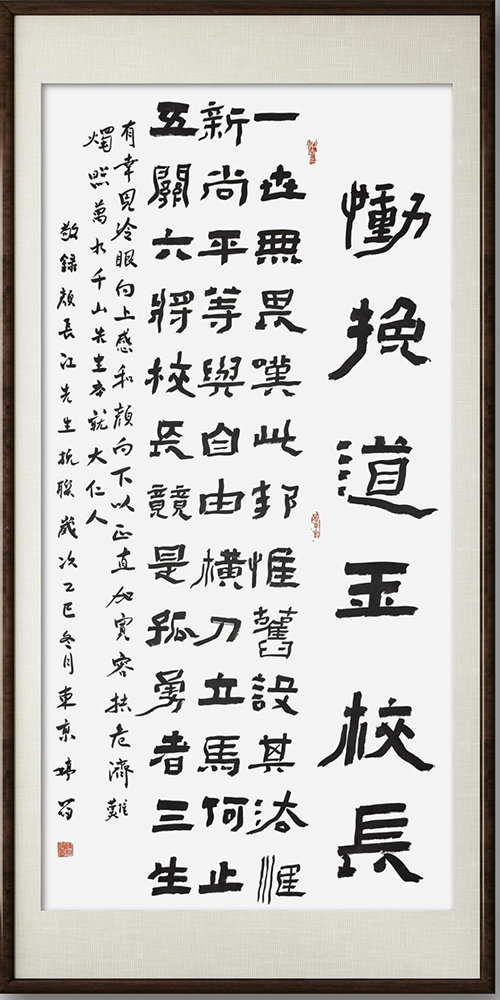 慟挽道玉校長
一世無畏嘆此邦惟舊設其法惟
新尚平等與自由橫刀立馬何止
五關六將校長競是孤勇者三生
有幸見冷眼向上感和顏向下以正直加寬容扶危濟難
燭照萬水千山先生本就大仁人
敬錄顏長江先生挽聯歲次乙巳冬月東京婷